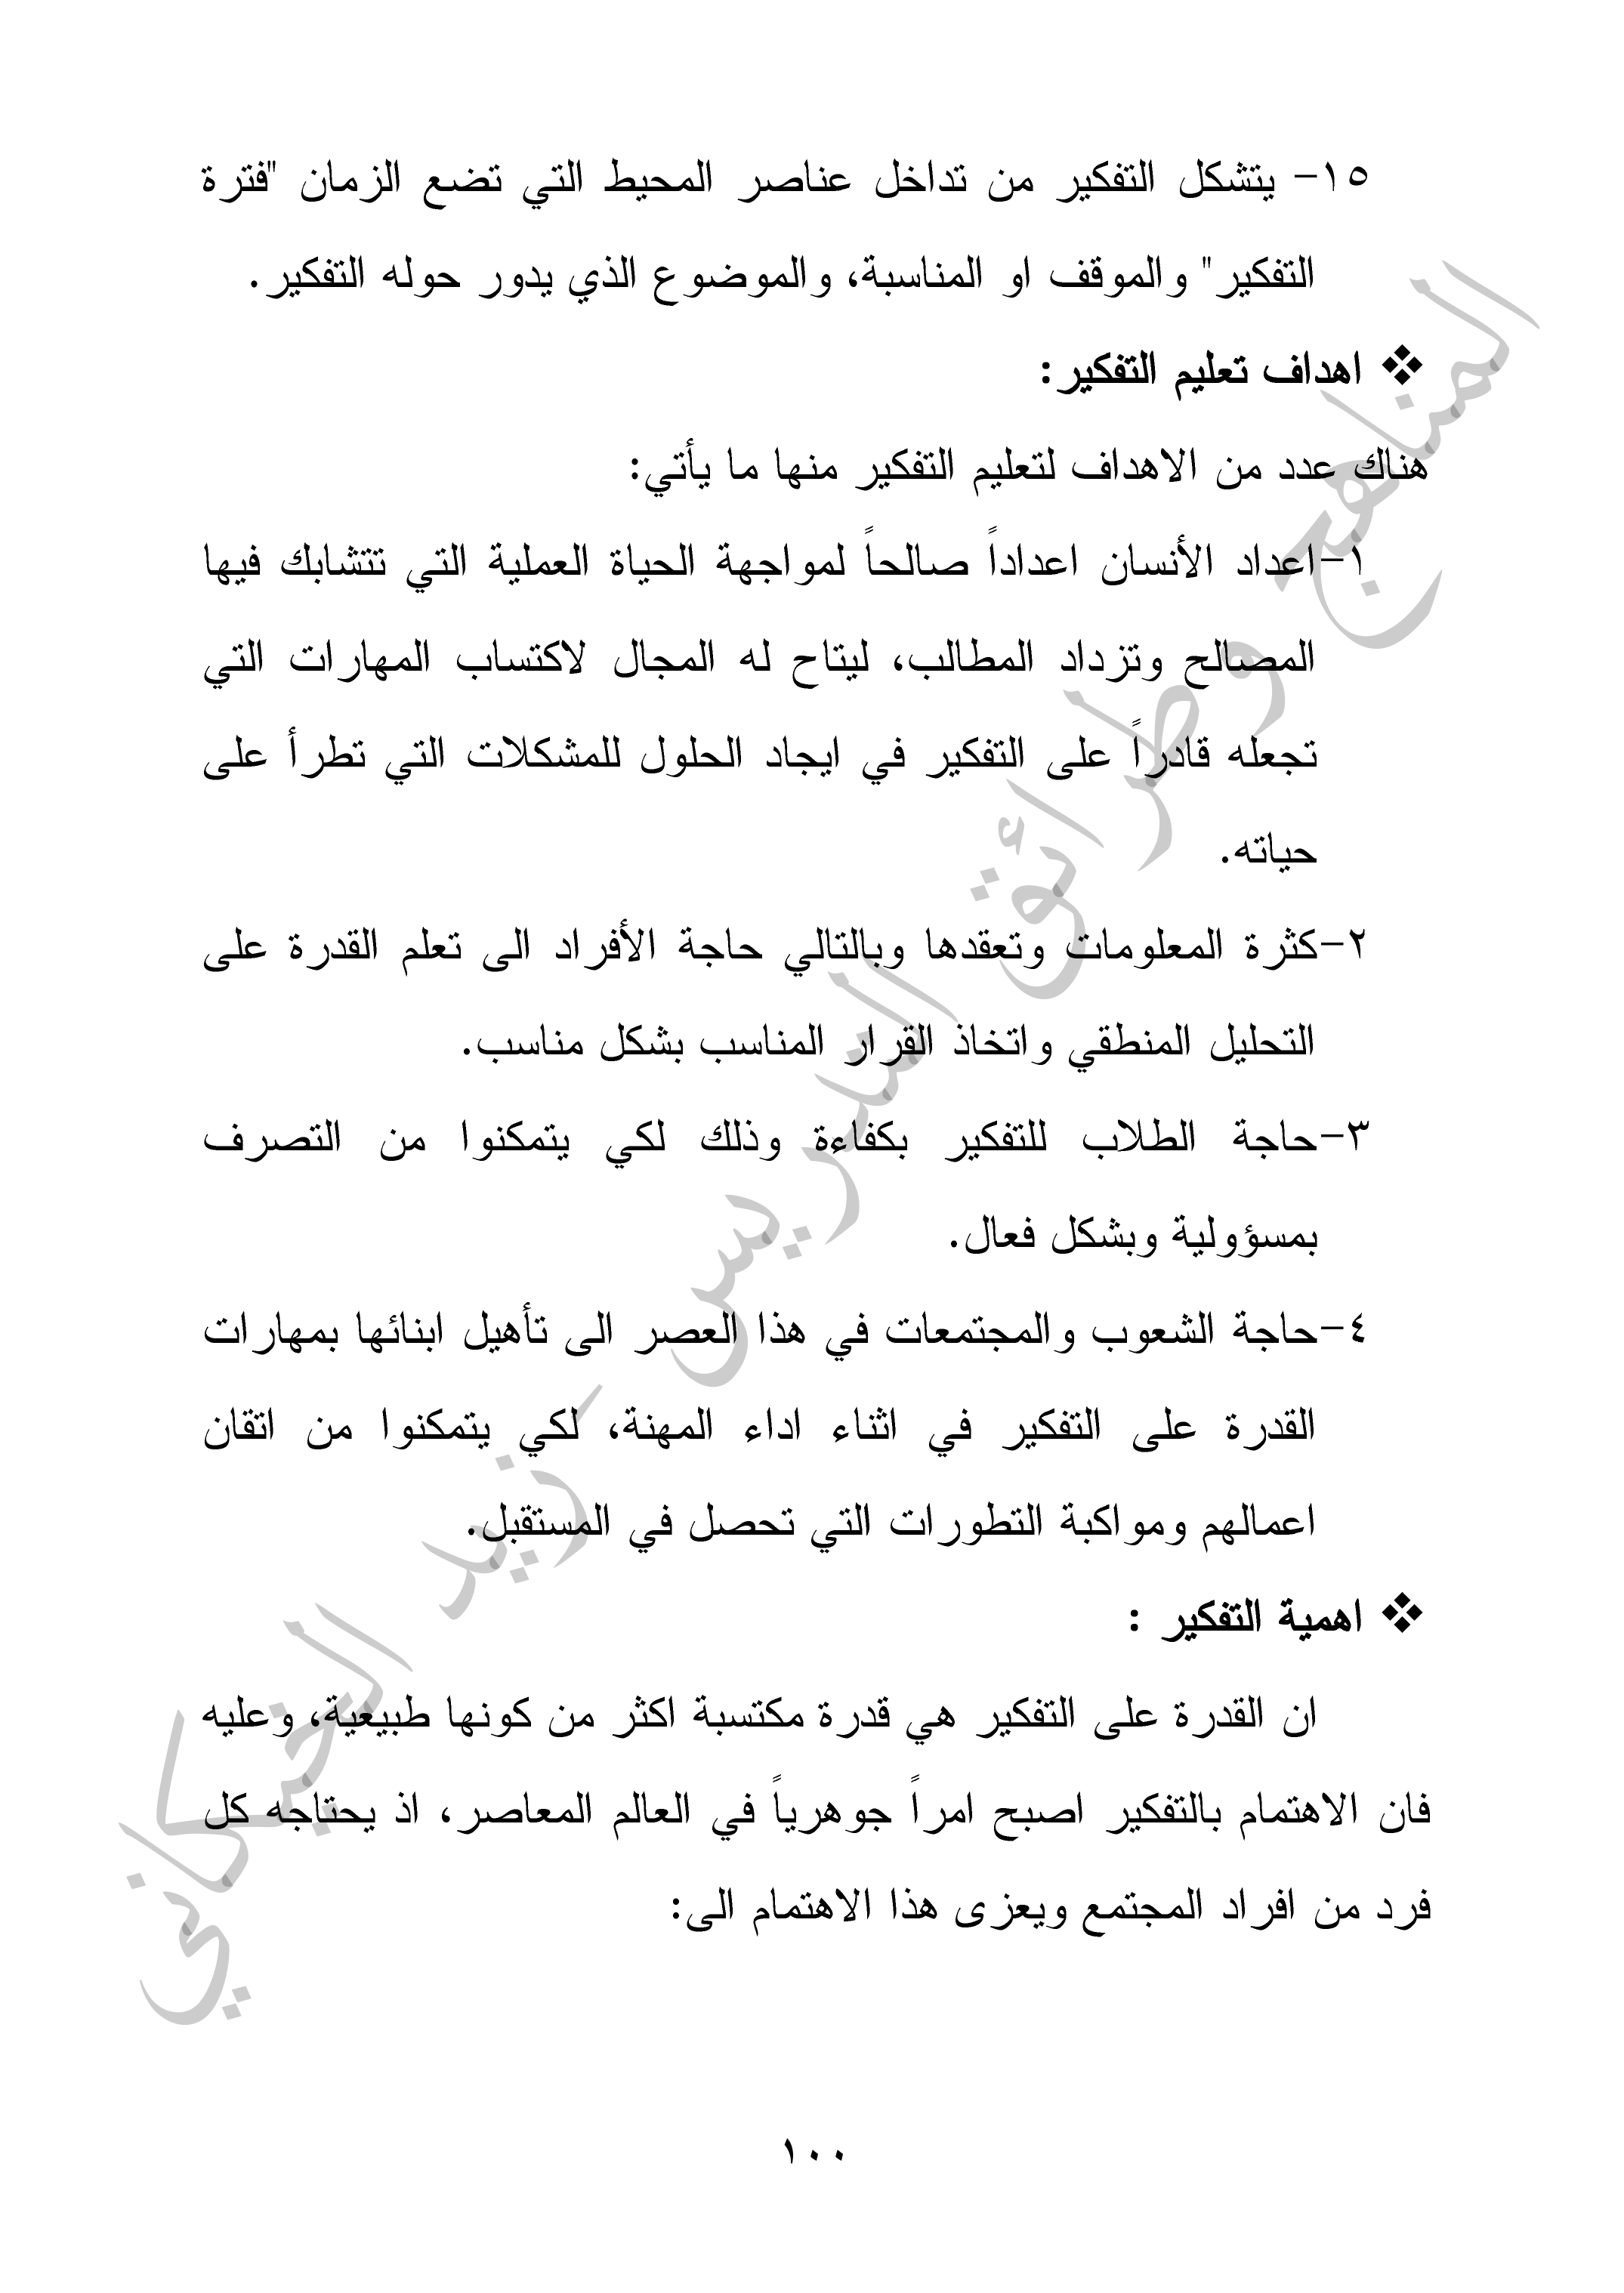 ١٥- يتشكل التفكير من تداخل عناصر المحيط التي تضع الزمان "فترة
التفكير" والموقف او المناسبة، والموضوع الذي يدور حوله التفكير.
❖ اهداف تعليم التفكير:
هناك عدد من الاهداف لتعليم التفكير منها ما يأتي:
١-اعداد الأنسان اعداداً صالحاً لمواجهة الحياة العملية التي تتشابك فيها
المصالح وتزداد المطالب، ليتاح له المجال لاكتساب المهارات التي
تجعله قادراً على التفكير في ايجاد الحلول للمشكلات التي تطرأ على
حياته.
٢-كثرة المعلومات وتعقدها وبالتالي حاجة الأفراد الى تعلم القدرة على
التحليل المنطقي واتخاذ القرار المناسب بشكل مناسب.
٣-حاجة الطلاب للتفكير بكفاءة وذلك لكي يتمكنوا من التصرف
بمسؤولية وبشكل فعال.
٤-حاجة الشعوب والمجتمعات في هذا العصر الى تأهيل ابنائها بمهارات
القدرة على التفكير في اثناء اداء المهنة، لكي يتمكنوا من اتقان
اعمالهم ومواكبة التطورات التي تحصل في المستقبل.
❖ اهمية التفكير :
ان القدرة على التفكير هي قدرة مكتسبة اكثر من كونها طبيعية، وعليه
فان الاهتمام بالتفكير اصبح امراً جوهرياً في العالم المعاصر، اذ يحتاجه كل
فرد من افراد المجتمع ويعزى هذا الاهتمام الى:
١٠٠
المناهج وطرائق التدريس _ زيد الخيكاني